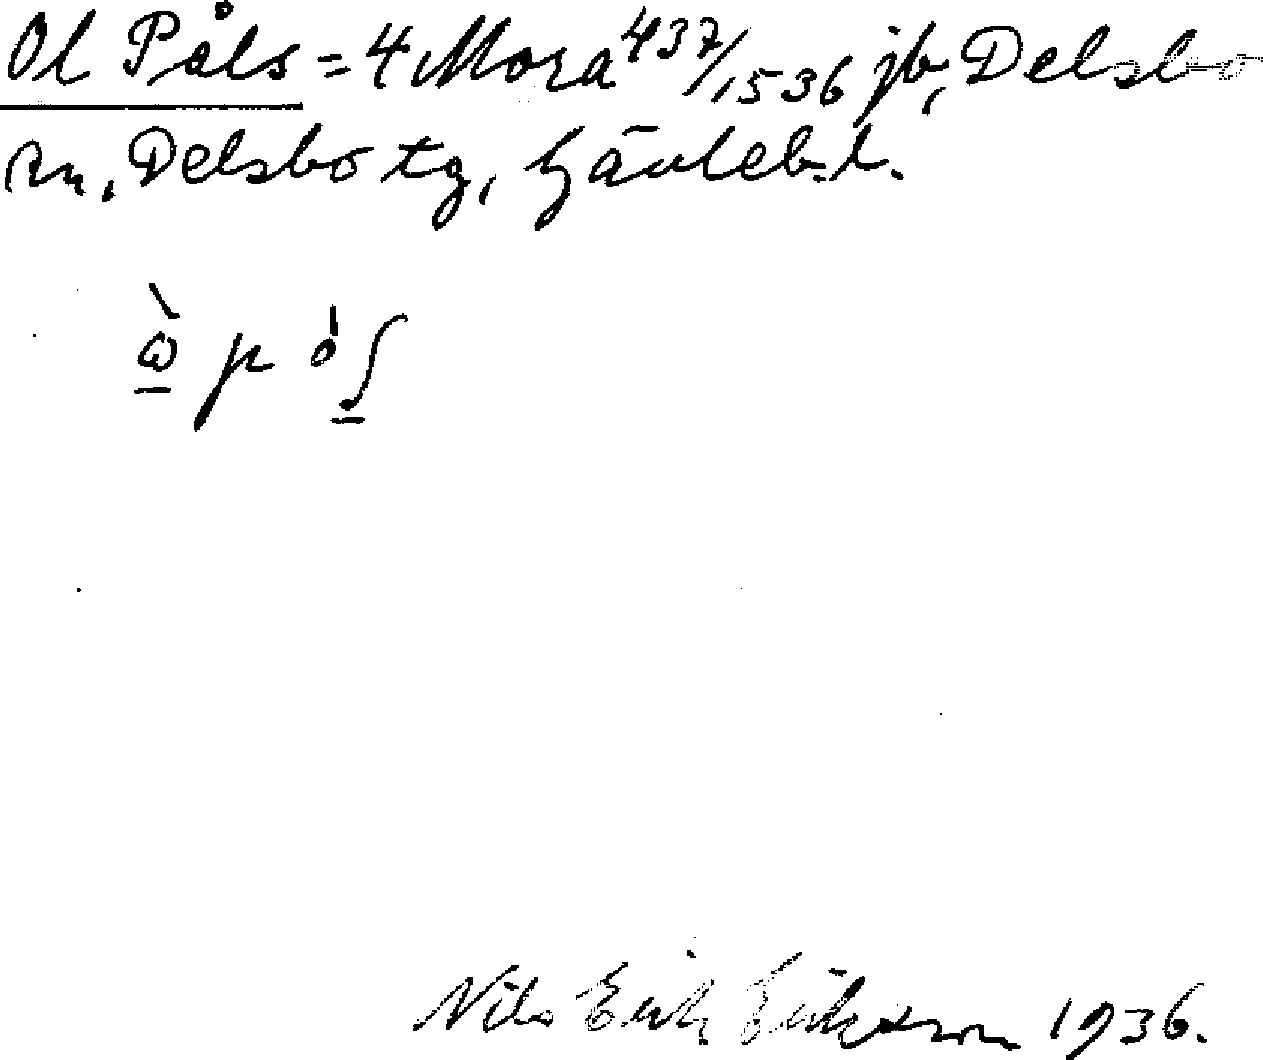 Ol Påls = 4 Mora 437/1536 jb, Delsbo
sn, Delsbo tg, Gävleb. l.
Nils Erik Erikson 1936.